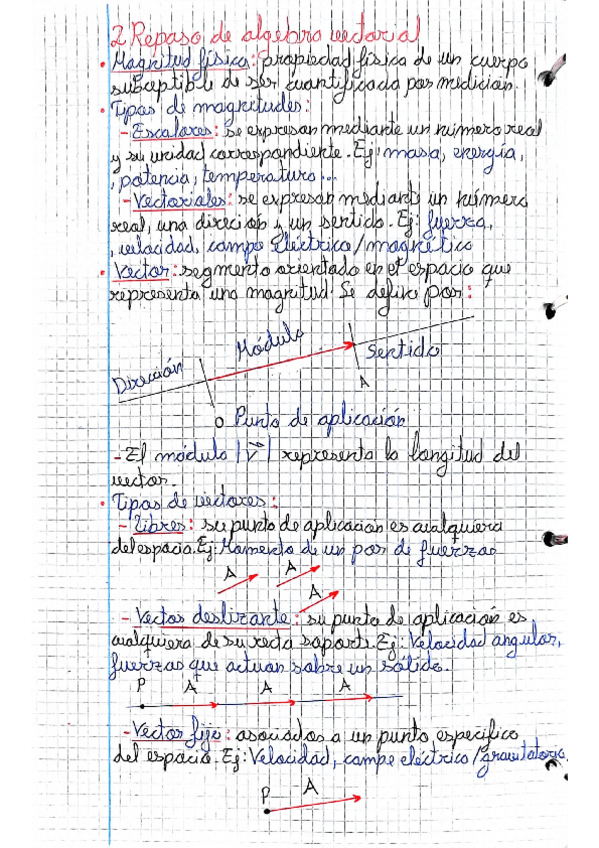 2 Repaso de algebra vectorial
• Magnitud física: propiedad física de un cuerpo
susceptible de ser cuantificada por medición.
• Tipos de magnitudes:
- Escalares: se expresan mediante un número real
y su unidad correspondiente. Ej: masa, energía,
, potencia, temperatura...
- Vectoriales: se expresan mediante un número
real, una dirección y un sentido. Ej: fuerza,
, velocidad, campo eléctrico/magnético
• Vector: segmento orientado en el espacio que
representa una magnitud. Se define por:
Módulo
Sentido
Dirección
A
O Punto de aplicación
- El módulo |V⃗| representa la longitud del
vector.
• Tipos de vectores:
- Libres: su punto de aplicación es cualquiera
del espacio. Ej: Momento de un par de fuerzas
A A
A
- Vector deslizante: su punto de aplicación es
cualquiera de su recta soporte. Ej: Velocidad angular,
fuerzas que actúan sobre un sólido.
P A A A
- Vector fijo: asociados a un punto específico
del espacio. Ej: Velocidad, campo eléctrico/gravitatorio
P A